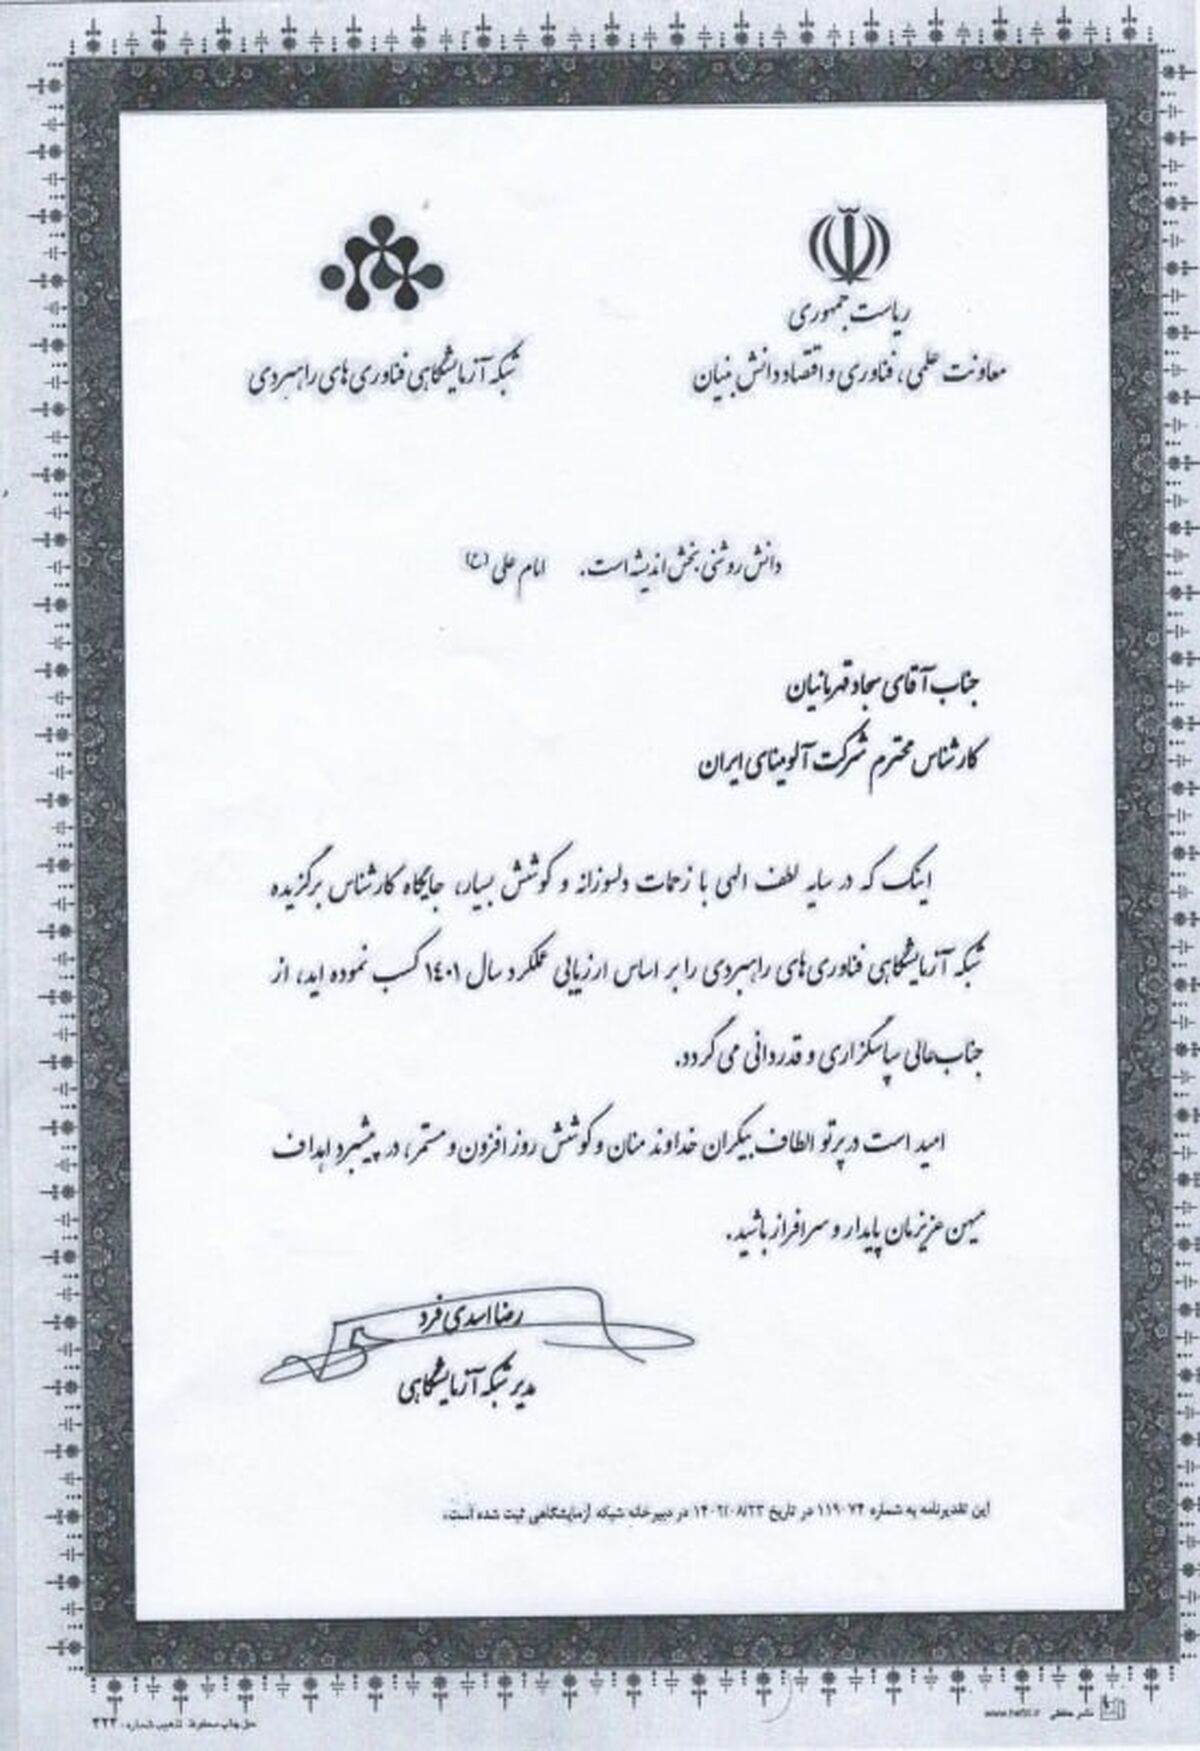 ریاست جمهوری
معاونت علمی، فناوری و اقتصاد دانش بنیان
شبکه آزمایشگاهی فناوری های راهبردی
دانش روشنی بخش اندیشه است. امام علی (ع)
جناب آقای سجاد قهرمانیان
کارشناس محترم شرکت آلومینای ایران
اینک که در سایه لطف الهی با زحمات دلسوزانه و کوشش بسیار، جایگاه کارشناس برگزیده
شبکه آزمایشگاهی فناوری های راهبردی را بر اساس ارزیابی عملکرد سال ۱۴۰۱ کسب نموده اید، از
جناب عالی سپاسگزاری و قدردانی می گردد.
امید است در پرتو الطاف بیکران خداوند منان و کوشش روز افزون و مستمر، در پیشبرد اهداف
میهن عزیزمان پایدار و سرافراز باشید.
رضا اسدی فرد
مدیر شبکه آزمایشگاهی
این تقدیرنامه به شماره ۱۱۹۰۷۴ در تاریخ ۱۴۰۲/۰۸/۲۳ در دبیرخانه شبکه آزمایشگاهی ثبت شده است.
حق چاپ محفوظ تذهیب شماره:
نشر حافظی